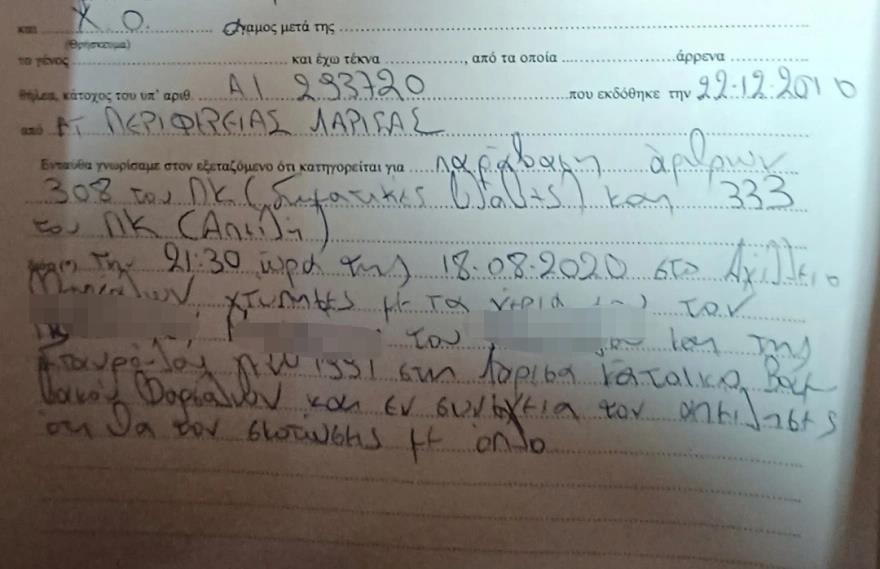 και Χ.Ο. άγαμος μετά της
(Θρήσκευμα)
το γένος και έχω τέκνα , από τα οποία άρρενα
θήλεα, κάτοχος του υπ' αριθ. ΑΙ 293720 που εκδόθηκε την 22.12.2010
από ΑΤ ΠΕΡΙΦΙΡΕΙΑΣ ΛΑΡΙΣΑΣ
Ενταύθα γνωρίσαμε στον εξεταζόμενο ότι κατηγορείται για παράβαση άρθρων
308 του ΠΚ (Σωματικές βλάβες) και 333
του ΠΚ (Απειλή)
την 21:30 ώρα της 18.08.2020 στο Αχίλλειο
χτύπησες με τα χέρια σου τον
του και της
1991 στη Λάρισα κάτοικο Βαμ
βακού Φαρσάλων και εν συνεχεία τον απείλησες
ότι θα τον σκοτώσεις με όπλο